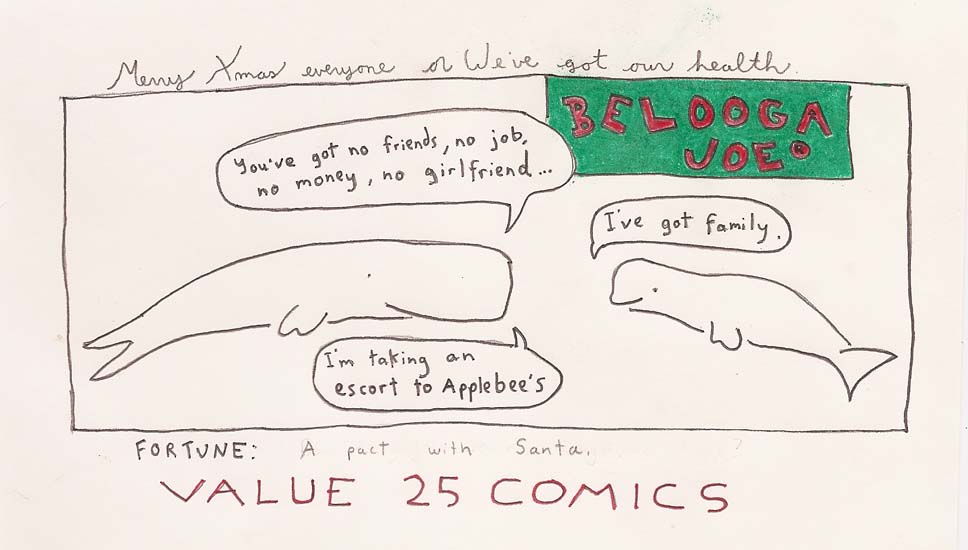 Merry Xmas everyone or We've got our health.
BELOOGA
JOE®
You've got no friends, no job,
no money, no girlfriend...
I've got family.
I'm taking an
escort to Applebee's
FORTUNE: A pact with Santa.
VALUE 25 COMICS